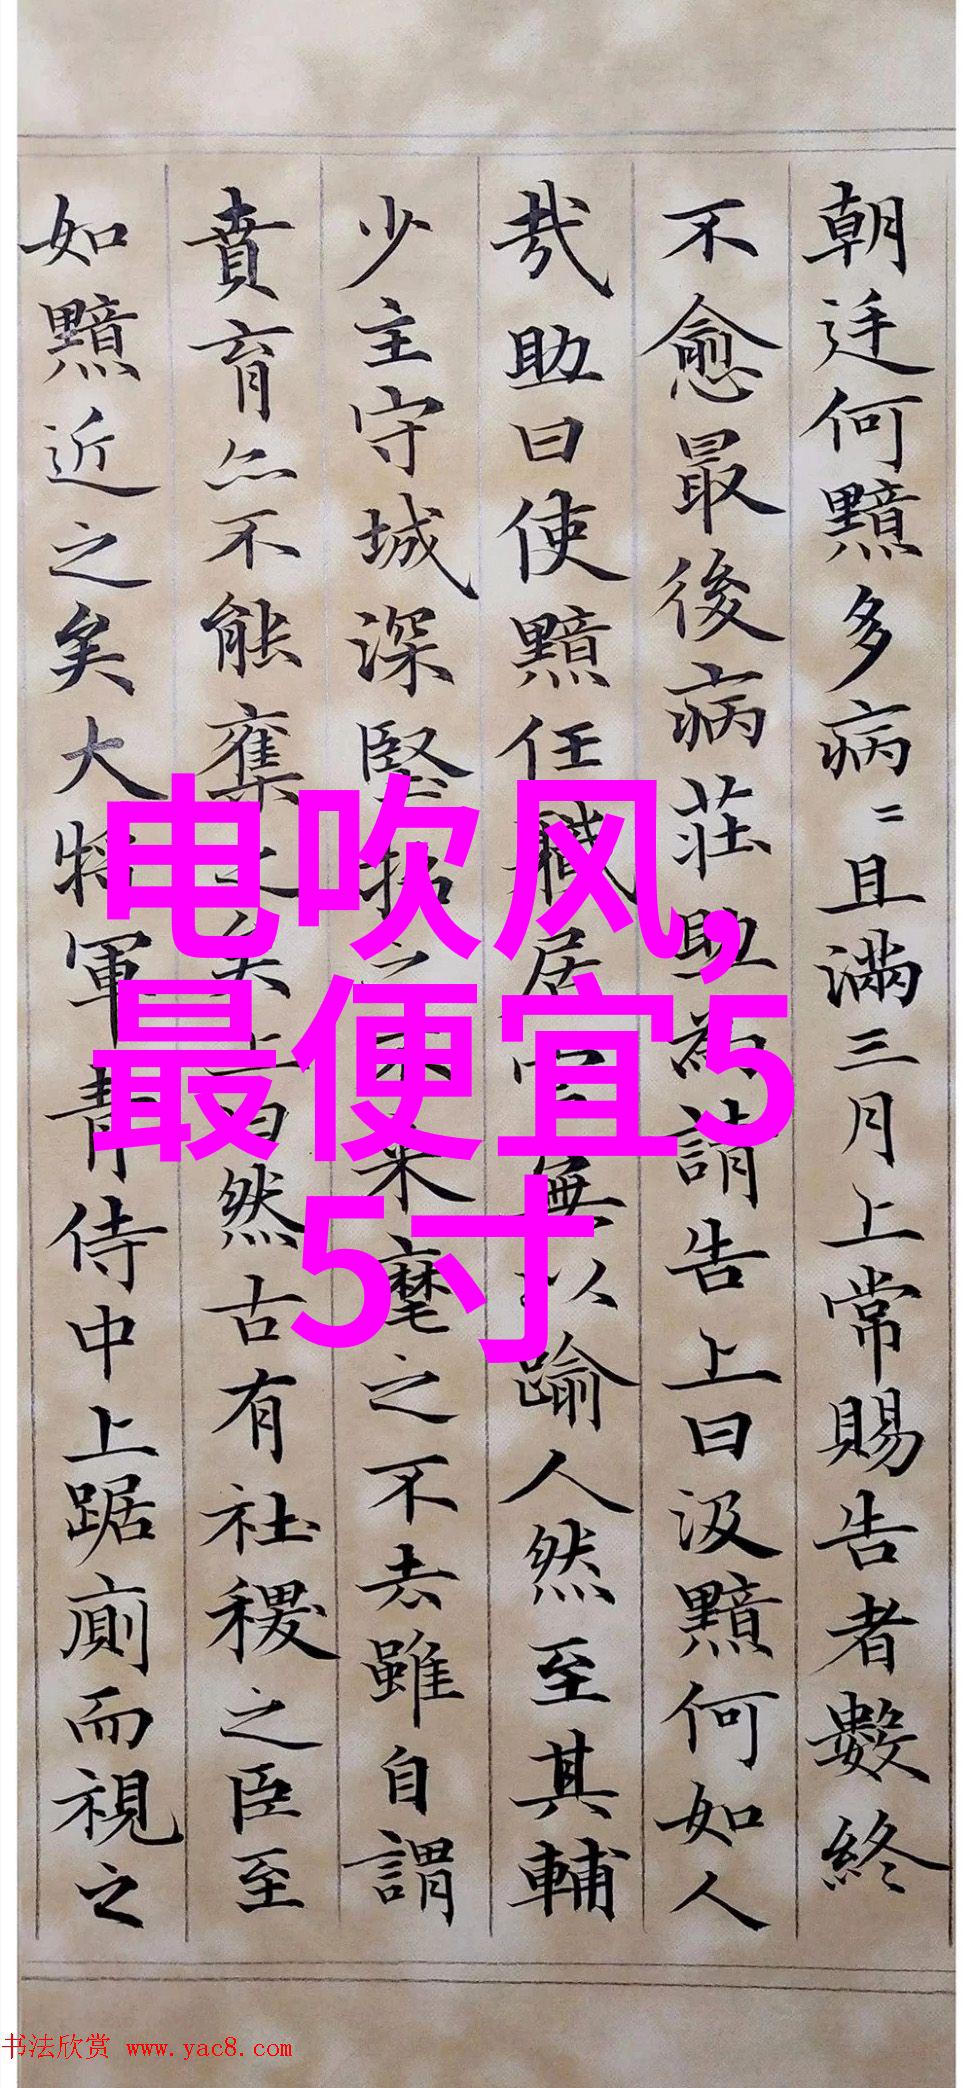 朝廷何黯多病〻且滿三月上常賜告者數終
不愈最後病莊助為請告上曰汲黯何如人
哉助曰使黯任職居官無以踰人然至其輔
少主守城深堅招之不來麾之不去雖自謂
賁育亦不能奪之矣上曰然古有社稷之臣至
如黯近之矣大將軍青侍中上踞廁而視之
电吹风,
最便宜5
5寸
书法欣赏 www.yac8.com